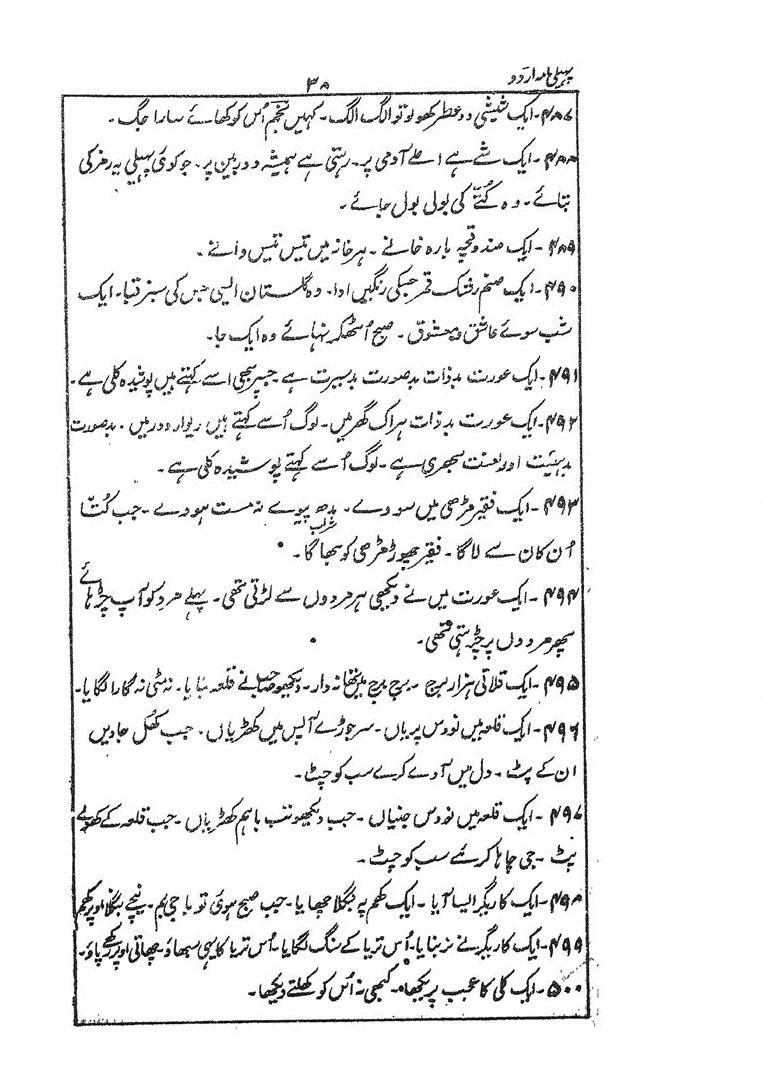 پہیلی نامہ اردو
۳۸
۴۸۷۔ ایک شیشی دو عطر کھولو تو الگ الگ۔ کہیں تخم اُس کو کھائے سارا جگ۔
۴۸۸۔ ایک شے ہے اعلےٰ آدمی پر۔ رہتی ہے ہمیشہ دوربین پر۔ جو کوئی پہیلی یہ رمز کی
بتائے۔ وہ کُتّے کی بولی بول جائے۔
۴۸۹۔ ایک صندوقچہ بارہ خانے۔ ہر خانہ میں تیس تیس دانے۔
۴۹۰۔ ایک صنم رشک قمر جسکی رنگیں ادا۔ وہ گلستان ایسی جس کی سبز قبا۔ ایک
شب سوئے عاشق و معشوق۔ صبح اُٹھکر نہائے وہ ایک جا۔
۴۹۱۔ ایک عورت بدذات بدصورت بدسیرت ہے۔ جسپر سبھی اسے کہتے ہیں پوشیدہ کلی ہے۔
۴۹۲۔ ایک عورت بدذات ہر اک گھر میں۔ لوگ اُسے کہتے ہیں دیوار و در میں۔ بدصورت
بدہیئت اور لعنت بھری ہے۔ لوگ اُسے کہتے پوشیدہ کلی ہے۔
۴۹۳۔ ایک فقیر مڑھی میں سووے۔ مدھ پیوے نہ مست ہووے۔ جب کُتّا
شراب
اُن کان سے لاگا۔ فقیر چھوڑ مڑھی کو بھاگا۔
۴۹۴۔ ایک عورت میں نے دیکھی ہر مردوں سے لڑتی تھی۔ پہلے مرد کو آپ چڑہائے
پھر مردوں پر چڑہتی تھی۔
۴۹۵۔ ایک قلاتی ہزار برج۔ برج برج میں تھانہ دار۔ دیکھو صاحب نے قلعہ بنایا۔ نہ مٹی نہ گارا لگایا۔
۴۹۶۔ ایک قلعہ میں نو دس پریاں۔ سر جوڑے آپس میں کھڑیاں۔ جب کھُل جاویں
ان کے پٹ۔ دل میں آوے کرے سب کو چٹ۔
۴۹۷۔ ایک قلعہ میں نو دس جنیاں۔ جب دیکھو تب باہم کھڑیاں۔ جب قلعہ کے کھولے
پٹ۔ جی چاہا کرئے سب کو چٹ۔
۴۹۸۔ ایک کاریگر ایسا آیا۔ ایک کھم پہ بنگلا چھایا۔ جب صبح ہوئی تو باجی بم۔ نیچے بنگلا اوپر کھم
۴۹۹۔ ایک کاریگر نے نر بنایا۔ اُس تریا کے سنگ لگایا۔ اُس تریا کا یہی سبھاؤ۔ چھاتی اوپر رکھے پاؤ۔
۵۰۰۔ ایک کلی کا عجب پریکھا۔ کبھی نہ اُس کو کھلتے دیکھا۔